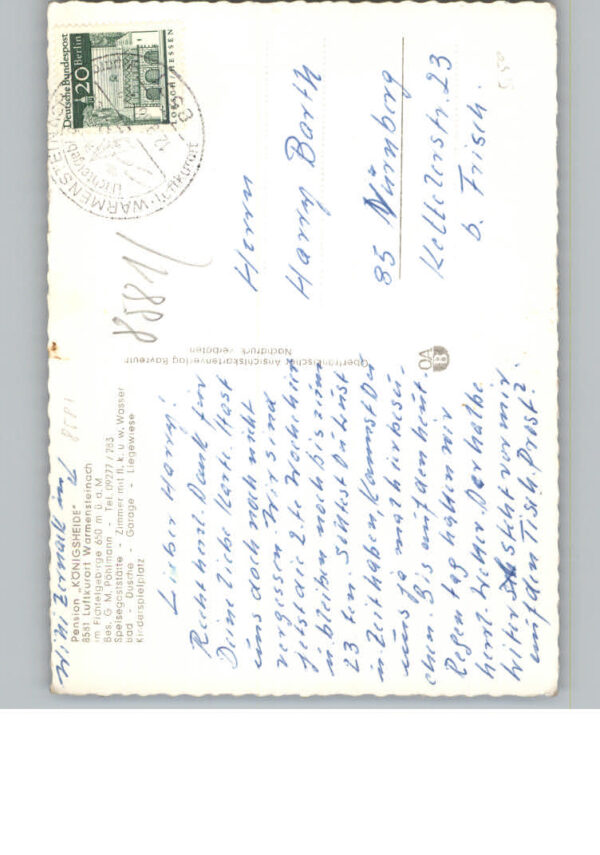 Pension „KÖNIGSHEIDE"
8581 Luftkurort Warmensteinach
im Fichtelgebirge 650 m ü. d. M.
Bes. G. M. Pöhlmann Tel. 09277 / 283
Speisegaststätte - Zimmer mit fl. k. u. w. Wasser
Bad - Dusche - Garage - Liegewiese
Kinderspielplatz
Lieber Harry!
Recht herzl. Dank für
Deine liebe Karte. Hast
uns doch noch nicht
vergessen. Wir sind
jetzt die 2. te Woche hier
u. bleiben noch bis zum
23 ten. Solltest Du Lust
u. Zeit haben kannst Du
uns ja mal hier besu-
chen. Bis auf den heut.
Regentag hatten wir
herrl. Wetter. Der halbe
Liter steht vor mir
auf dem Tisch. Prost!
Oberfränkischer Ansichtskartenverlag Bayreuth
Nachdruck verboten
OA
B
8581
8581
Deutsche Bundespost
Berlin
20
LORSCH/HESSEN
WARMENSTEINACH
Luftkurort
Fichtelgeb
Herrn
Harry Barth
85 Nürnberg
Kettelerstr. 23
b. Frisch.